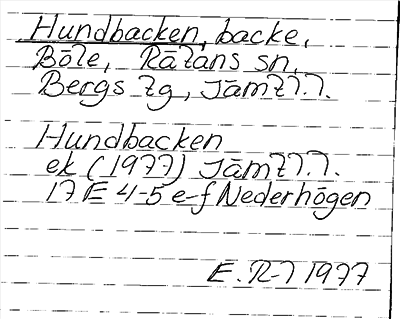 Hundbacken, backe,
Böle, Rätans sn,
Bergs tg, Jämtl.
Hundbacken
ek (1977) Jämtl.
17 E 4-5 e-f Nederhögen
E. R-l 1977